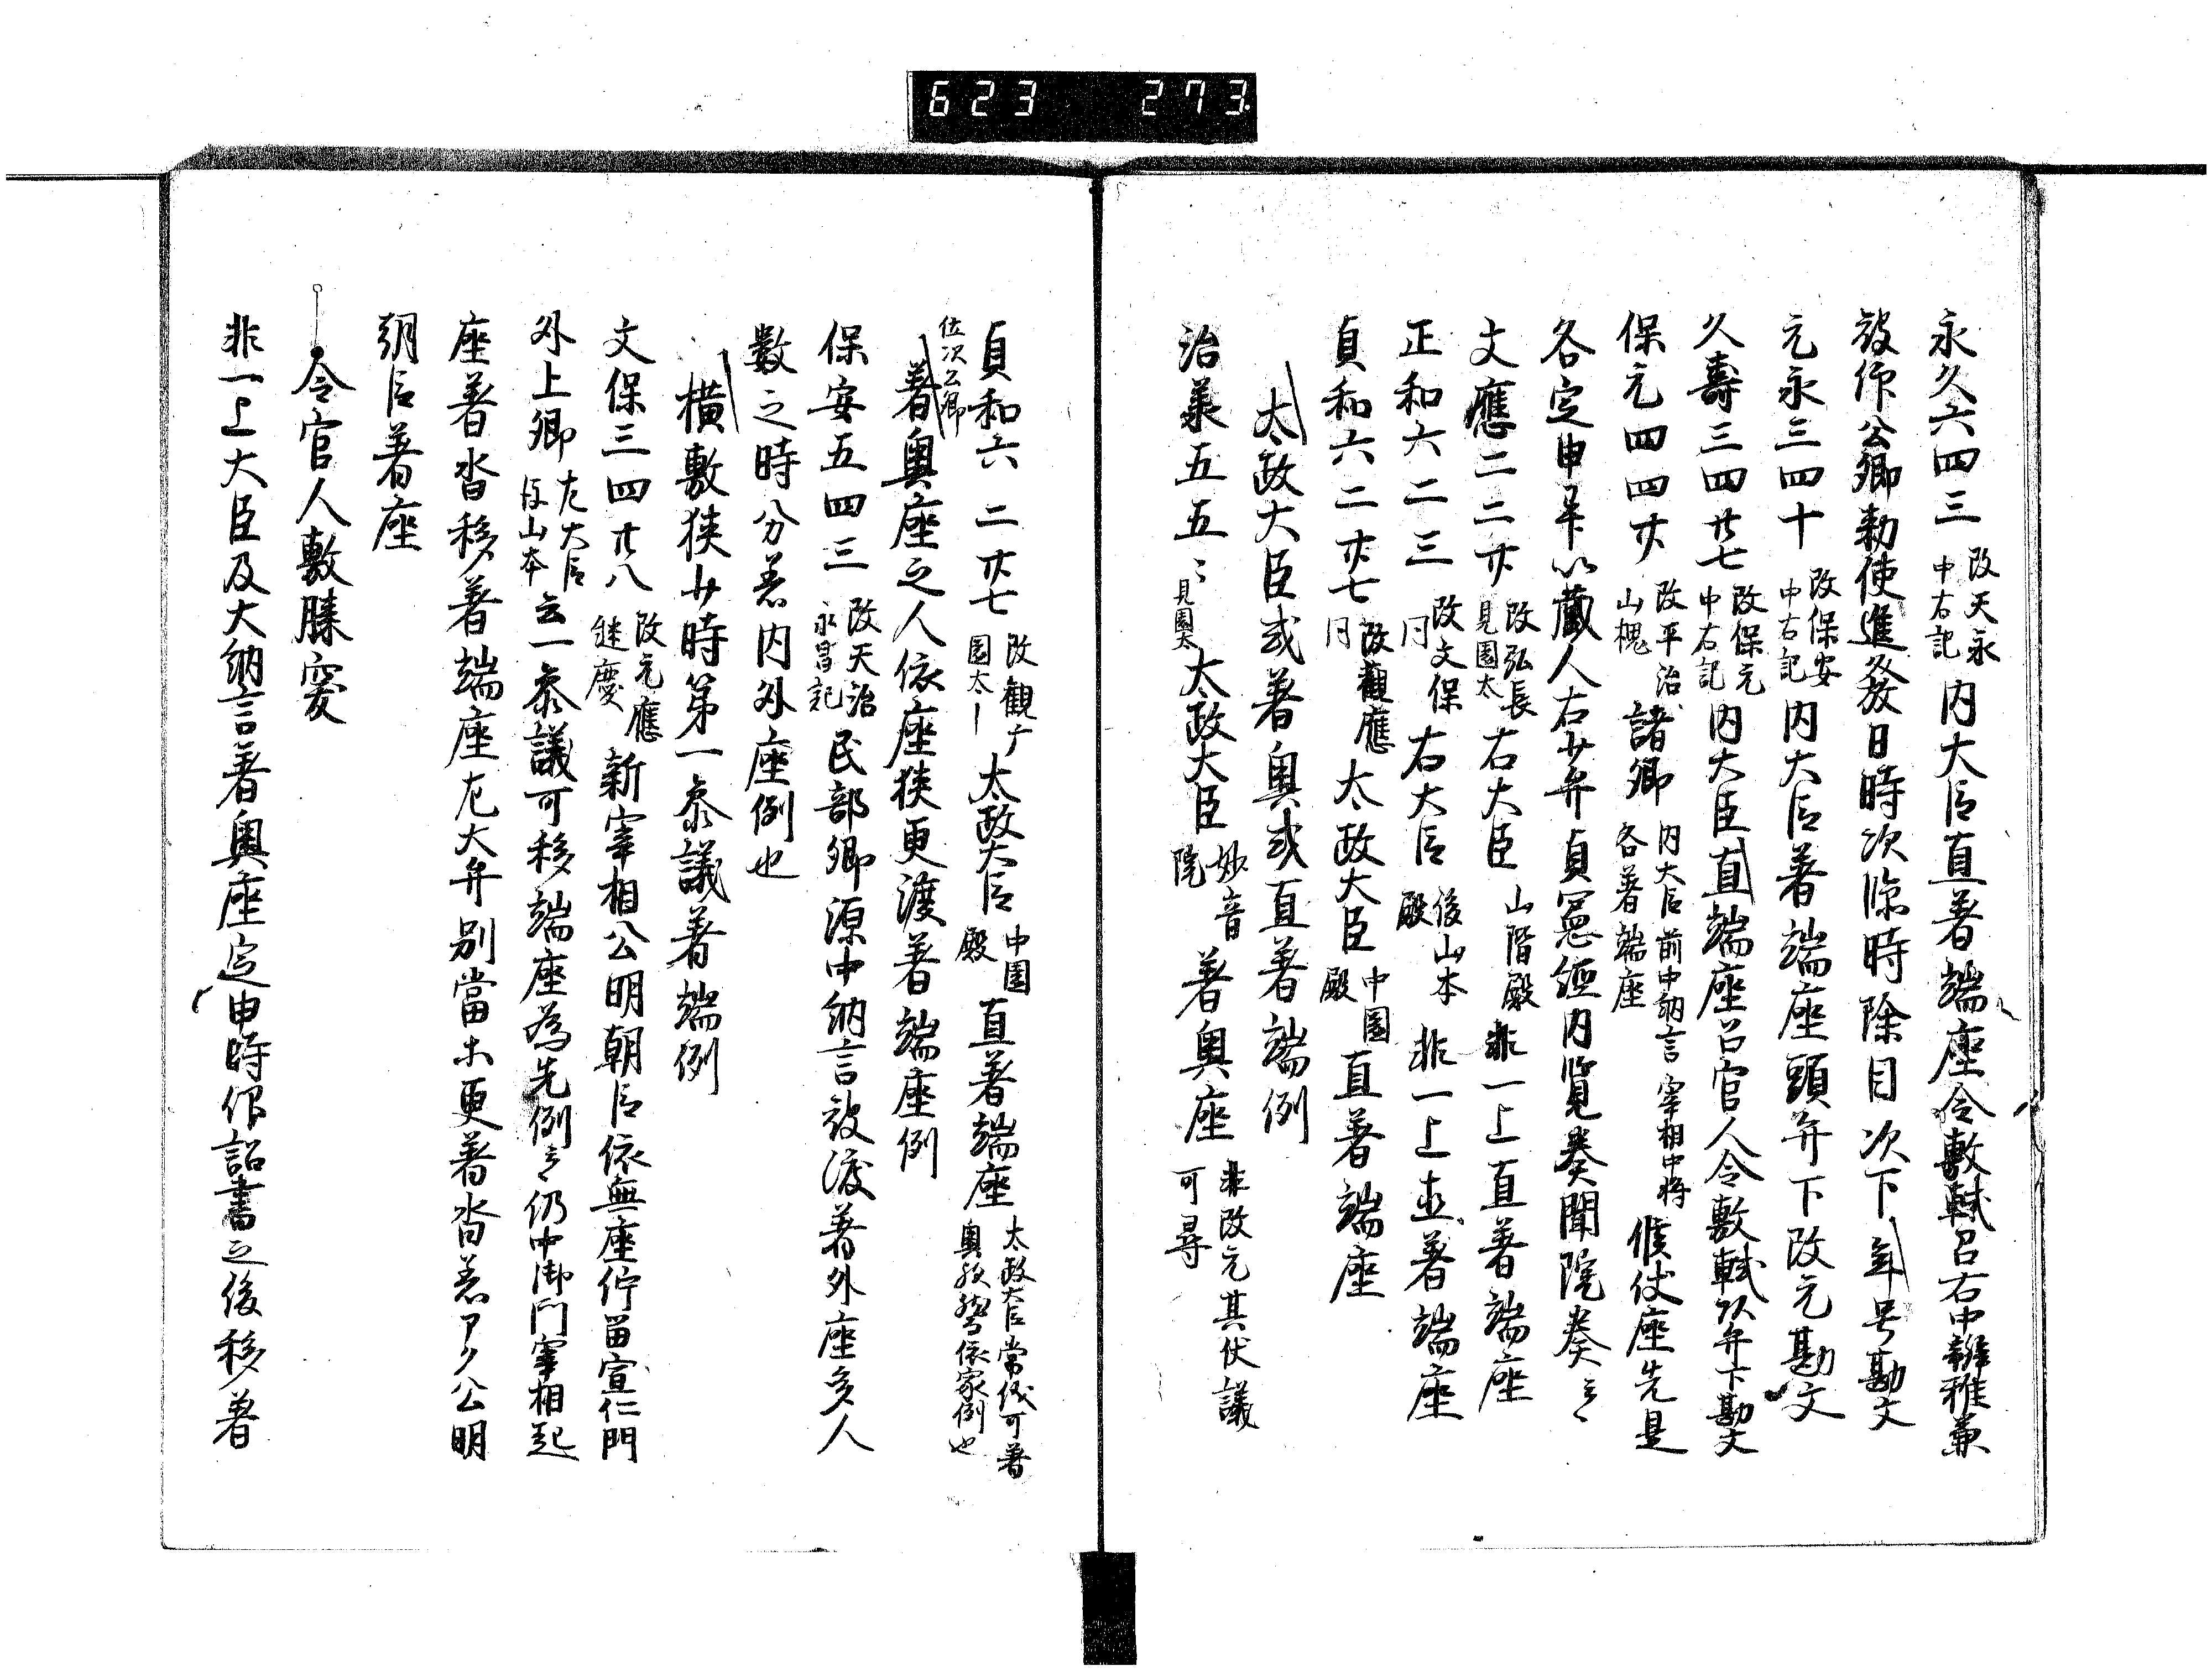 623 273
永久六四三 改天永 中右記 内大臣直著端座令敷軾召右中辨雅兼
被仰公卿勅使進発日時次臨時除目次下年号勘文
元永三四十 改保安 中右記 内大臣著端座頭弁下改元勘文
久壽三四廿七 改保元 中右記 内大臣直端座召官人令敷軾頭弁下勘文
保元四四廿 改平治 山槐 諸卿 内大臣前中納言宰相中将 各著端座 候仗座先是
各定申年号以蔵人右少弁貞憲経内覧奏聞院奏云々
文應二二廿 改弘長 見園太 右大臣 山階殿 非一上直著端座
正和六二三 改文保 同 右大臣 後山本殿 非一上直著端座
貞和六二廿七 改觀應 同 太政大臣 中園殿 直著端座
太政大臣或著奥或直著端例
治承五五々 見園太 太政大臣 妙音院 著奥座 非改元其仗議 可尋
貞和六二廿七 改観广 園太 太政大臣 中園殿 直著端座 太政大臣常儀可著 奥歟然而依家例也
位次公卿
著奥座之人依座狭更渡著端座例
保安五四三 改天治 永昌記 民部卿源中納言被渡著外座多人
數之時分居内外座例也
横敷狭少時第一参議著端例
文保三四廿八 改元應 継慶 新宰相公明朝臣依無座佇留宣仁門
外上卿 左大臣 後山本 云一参議可移端座為先例云々仍中御門宰相起
座著沓移著端座左大弁別當等更著沓居了公明
朝臣著座
令官人敷膝突
非一上大臣及大納言著奥座定申時仰詔書之後移著